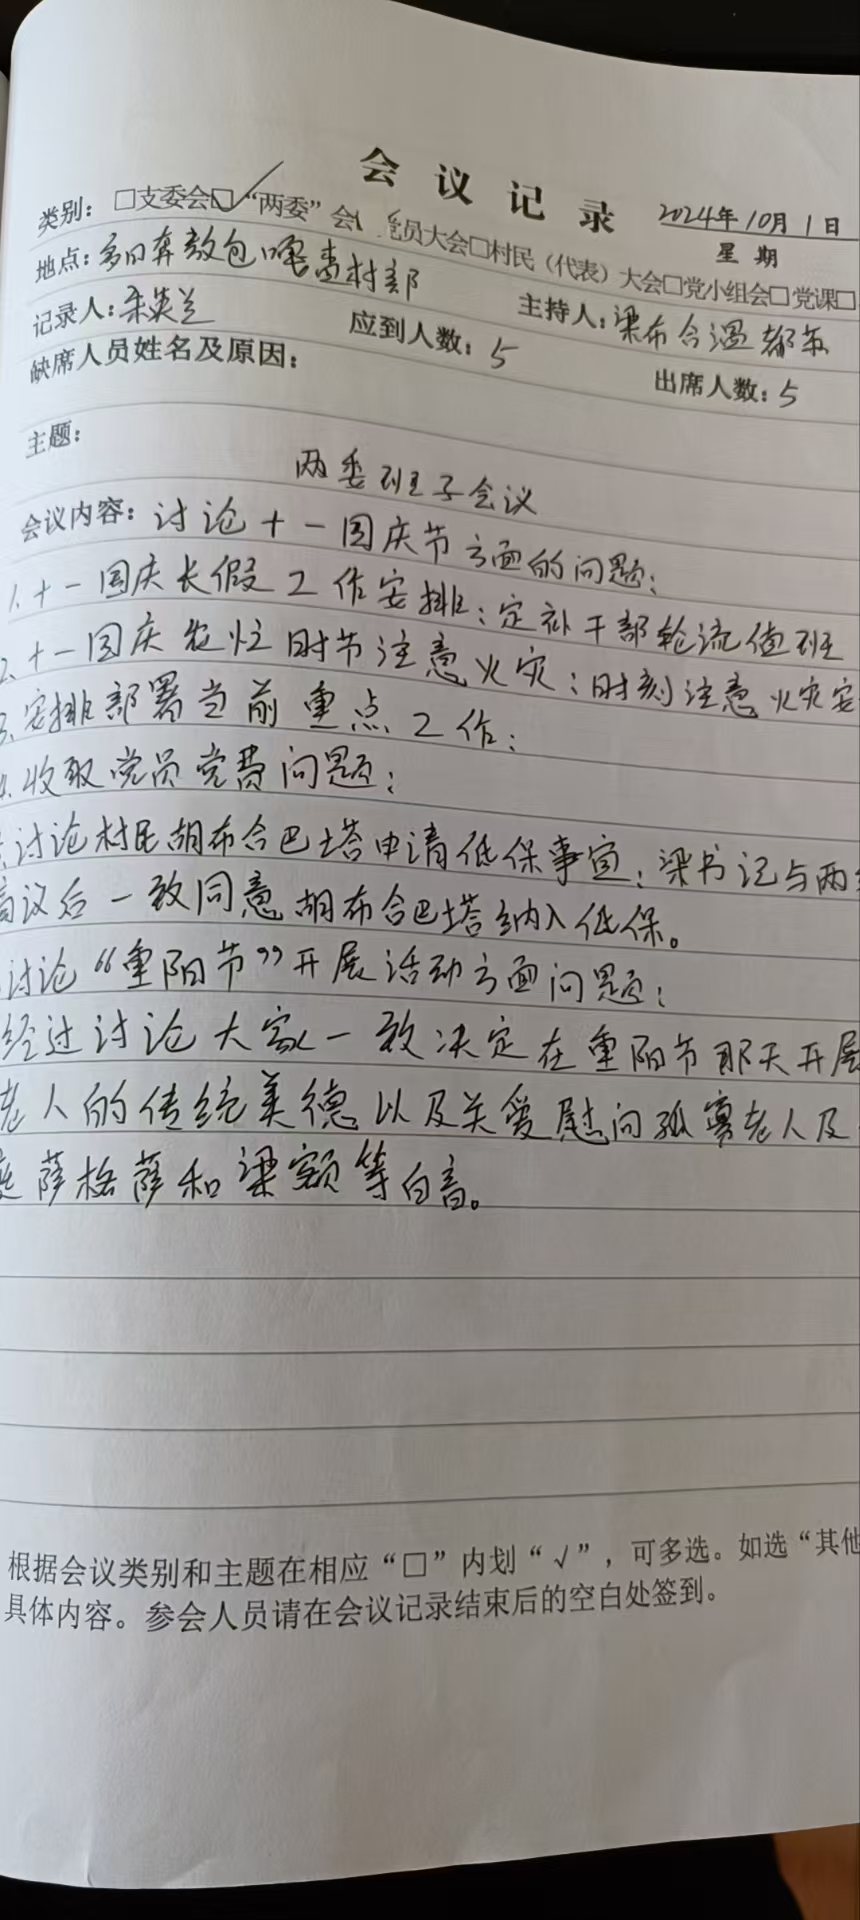 会议记录
2024年10月1日
星期
类别：□支委会☑“两委”会 党员大会□村民（代表）大会□党小组会□党课□
地点：多日奔敖包嘎查村部
记录人： 主持人：梁布合温都
应到人数：5 出席人数：5
缺席人员姓名及原因：
主题：
两委班子会议
会议内容：讨论十一国庆节方面的问题；
1.十一国庆长假工作安排：定补干部轮流值班
2、十一国庆农忙时节注意火灾：时刻注意火灾安
3、安排部署当前重点工作；
4.收取党员党费问题；
讨论村民胡布合巴塔申请低保事宜：梁书记与两
商议后一致同意胡布合巴塔纳入低保。
讨论“重阳节”开展活动方面问题；
经过讨论大家一致决定在重阳节那天开展
老人的传统美德以及关爱慰问孤寡老人及
庭萨格萨和梁额等白音。
根据会议类别和主题在相应“□”内划“√”，可多选。如选“其他
具体内容。参会人员请在会议记录结束后的空白处签到。